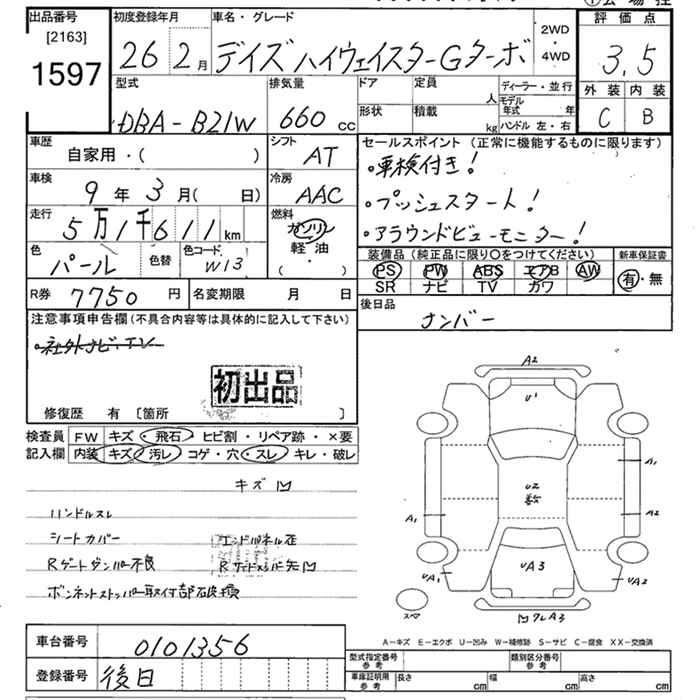 出品番号 初度登録年月 車名・グレード 評価点
[2163]
1597
26年 2月 デイズ ハイウェイスターGターボ 2WD・4WD 3,5
型式 排気量 ドア 定員 人 ディーラー・並行 外装 内装
DBA-B21W 660cc 形状 積載 kg モデル年式 年 ハンドル 左・右 C B
車歴 自家用・( ) シフト AT
車検 9年 3月( 日) 冷房 AAC
走行 5万1千611km 燃料 ガソリン 軽油 ( ・ )
色 パール 色替 色コード W13
R券 7750円 名変期限 月 日
セールスポイント (正常に機能するものに限ります)
・車検付き!
・プッシュスタート!
・アラウンドビューモニター!
装備品 (純正品に限り○をつけてください) 新車保証書
PS PW ABS エアB AW 有・無
SR ナビ TV カワ
後日品
ナンバー
注意事項申告欄 (不具合内容等は具体的に記入して下さい)
・社外ナビ・
初出品
修復歴 有 [箇所 ]
検査員 FW キズ・飛石・ヒビ割・リペア跡・×要
記入欄 内装 キズ・汚レ・コゲ・穴・スレ・キレ・破レ
キズ凹
ハンドルスレ
シートカバー エンドパネル歪
Rゲートダンパー不良 Rサイドメンバー先凹
ボンネットストッパー取付部破損
A2
U1
A1
U2
数
A1 A2
UA1 UA3 UA2
スペア
凹クレA3
A-キズ E-エクボ U-凹み W-補修跡 S-サビ C-腐食 XX-交換済
車台番号 0101356
登録番号 後日
型式指定番号 参考 類別区分番号 参考
車庫証明用 参考 長さ cm 幅 cm 高さ cm